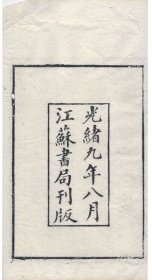 光緒九年八月
江蘇書局刊版